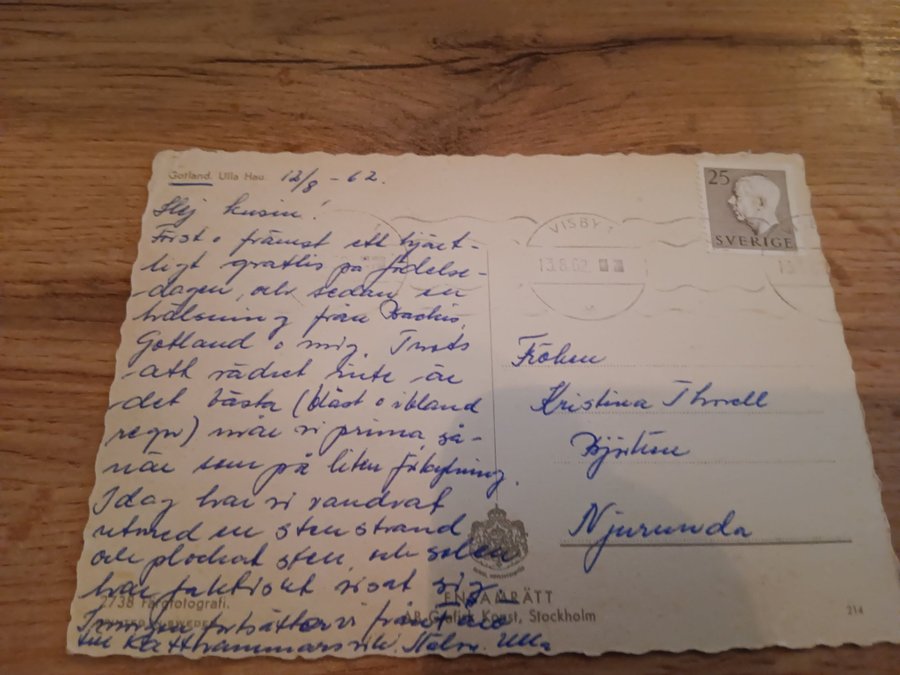 Gotland. Ulla Hau. 12/8 - 62.
Hej kusin!
Först o främst ett hjärt-
ligt grattis på födelse-
dagen, och sedan en
hälsning från
Gotland o mig. Trots
att vädret inte är
det bästa (blåst o ibland
regn) mår vi prima så-
när som på liten förkylning.
Idag har vi vandrat
utmed en stenstrand
och plockat sten, och solen
har faktiskt visat sig.
I morgon fortsätter vi från
till Katthammarsvik. Ulla
2738 Färgfotografi.
25
SVERIGE
VISBY 1
13.8.62
13
Fröken
Kristina Thorell
Njurunda
ENSAMRÄTT
AB Grafisk Konst, Stockholm
214